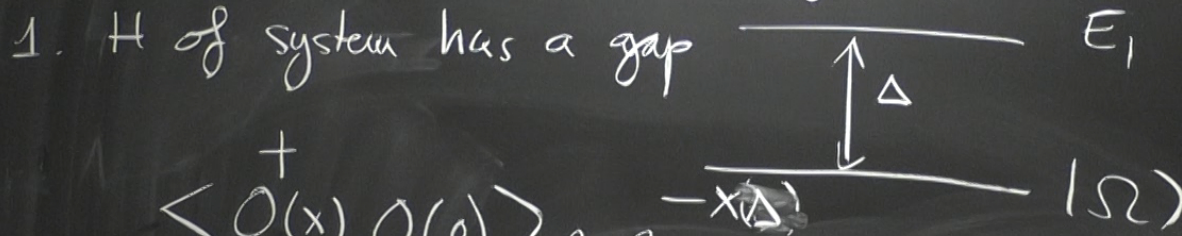 1. H of system has a gap E₁
Δ
+ |Ω⟩
<O(x) O(0)> -xΔ